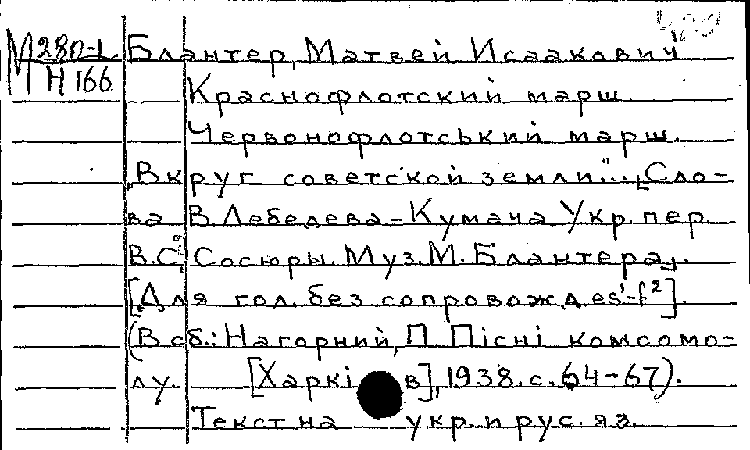 М 280-1 Блантер, Матвей Исаакович
Н 166
Краснофлотский марш.
Червонофлотський марш.
„Вкруг советской земли“... [Сло-
ва В. Лебедева-Кумача Укр. пер.
В. С. Сосюры. Муз. М. Блантера].
[Для гол. без сопровожд. es¹-f²].
(В сб.: Нагорний, П. Пісні комсомо-
лу. [Харків], 1938. с. 64-67).
Текст на укр. и рус. яз.